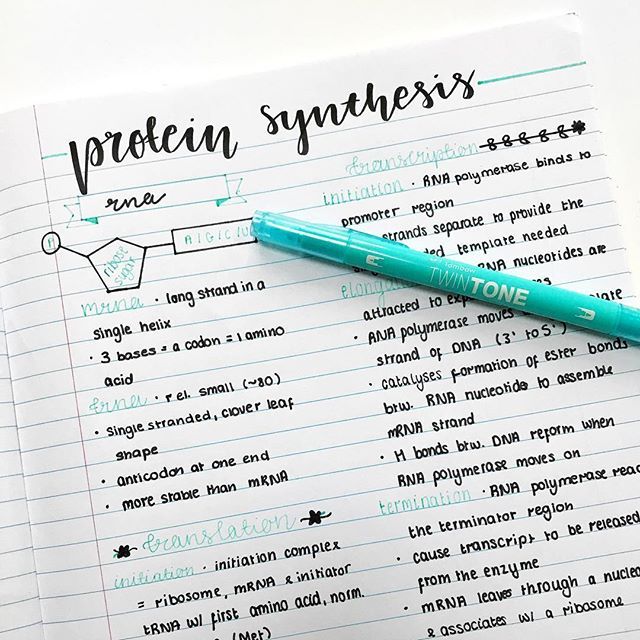 protein synthesis
rna
ribose
sugar
A|G|C|U
mrna · long strand in a
single helix
· 3 bases = a codon = 1 amino
acid
trna · rel. small (~80)
· single stranded, clover leaf
shape
· anticodon at one end
· more stable than mRNA
translation
initiation · initiation complex
= ribosome, mRNA & initiator
tRNA w/ first amino acid, norm.
(Met)
transcription
initiation · RNA polymerase binds to
promoter region
strands separate to provide the
template needed
RNA nucleotides are
attracted to
· RNA polymerase moves
strand of DNA (3' to 5')
· catalyses formation of ester bonds
btw. RNA nucleotides to assemble
mRNA strand
· H bonds btw. DNA reform when
RNA polymerase moves on
termination · RNA polymerase
the terminator region
· cause transcript to be released
from the enzyme
· mRNA leaves through a
& associates w/ a ribosome
Tombow
TWINTONE